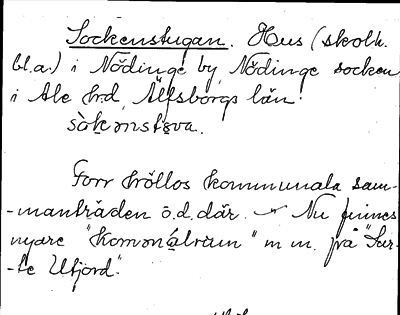 Sockenstugan. Hus (skolh.
bl.a.) i Nödinge by, Nödinge socken
i Ale h:d, Älfsborgs län.
sòkenstova.
Forr höllos kommunala sam-
-manträden o.d. där. Nu finnes
nyare "komonálrum" m m. på "Sur-
-te Utjord".